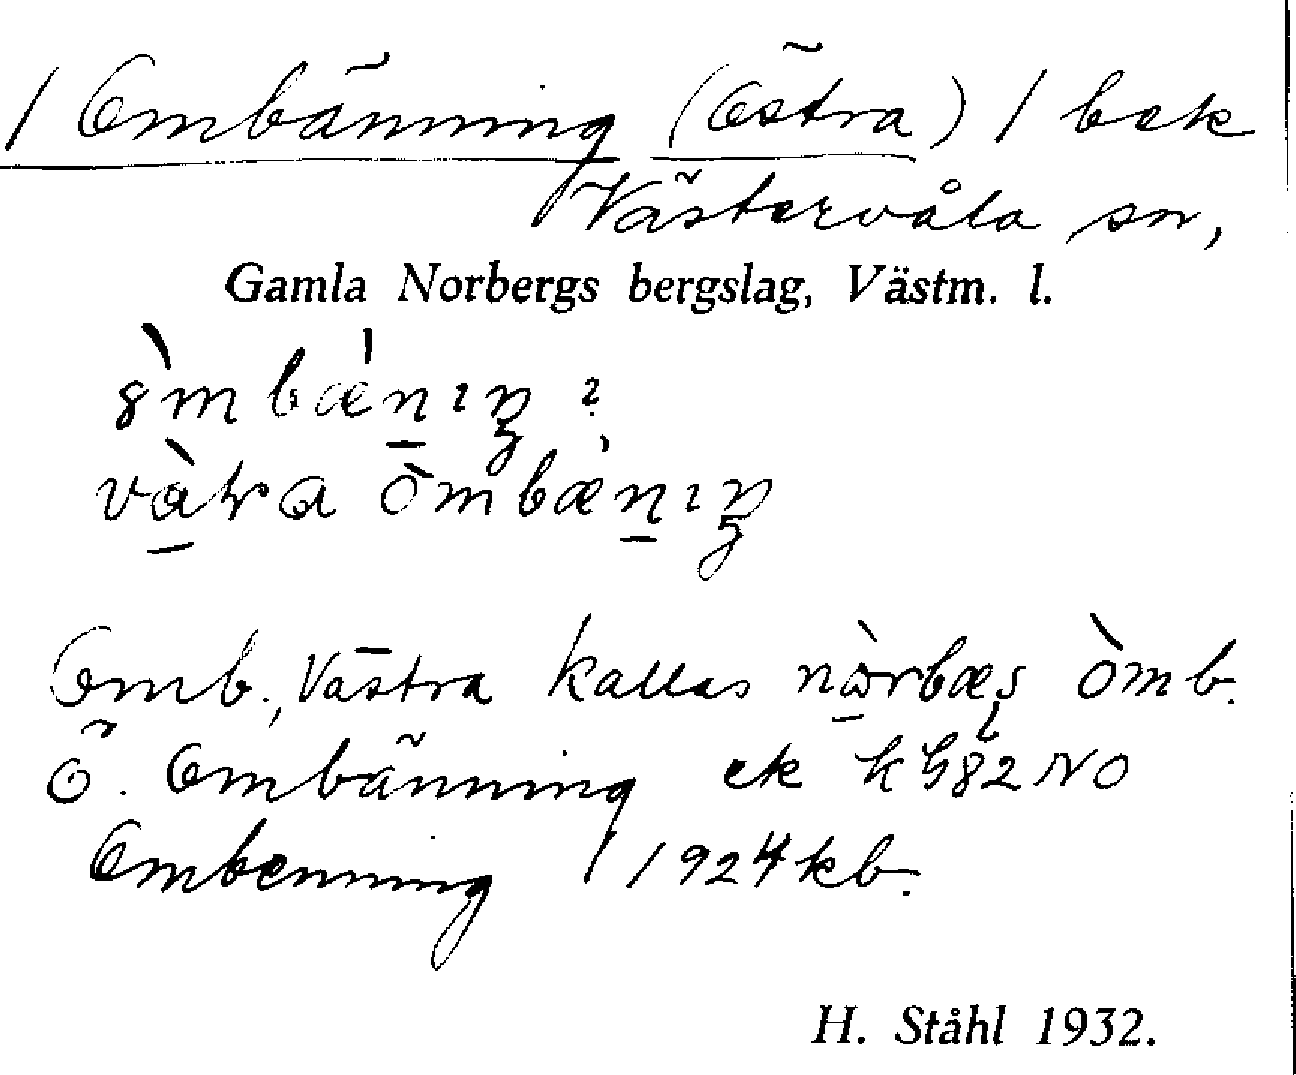 / Ombänning (Östra) / bek
Västervåla sn,
Gamla Norbergs bergslag, Västm. l.
òmbǽnıŋ ?
vàtra òmbǽnıŋ
Omb., Västra kallas nòrbæs òmb.
Ö. Ombänning ek k 82 NO
Ombenning / 1924 kb.
H. Ståhl 1932.